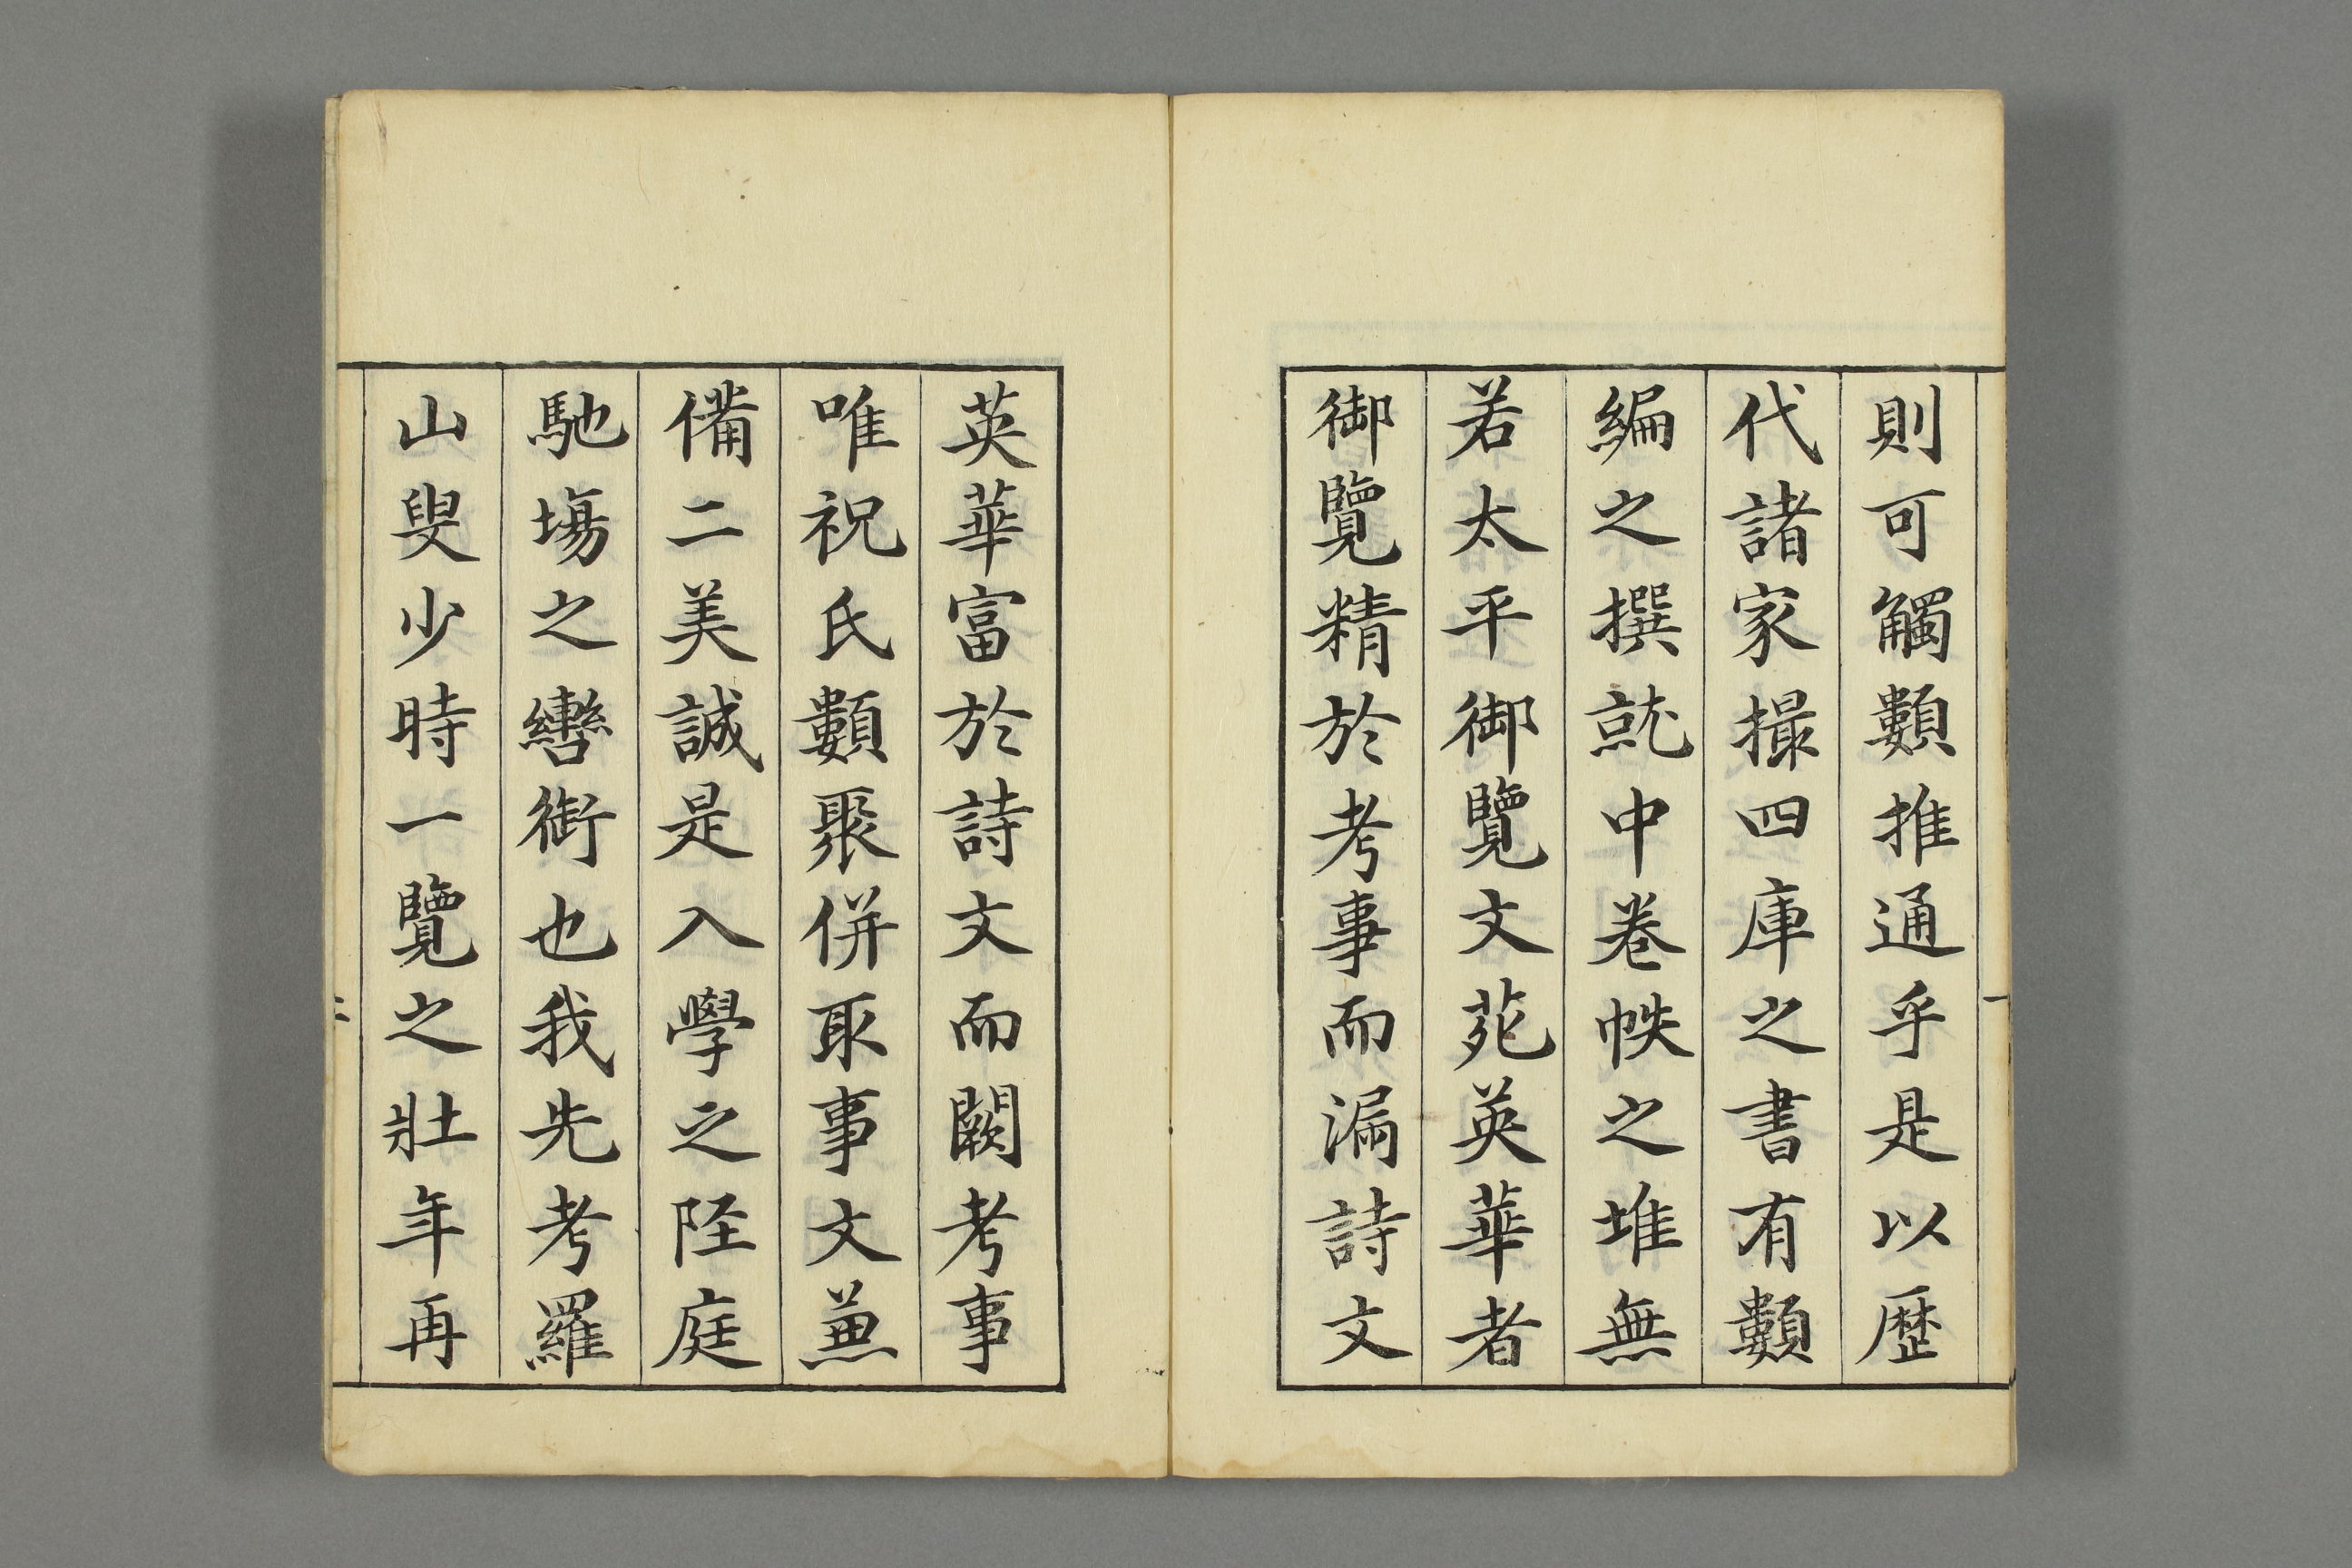 則可觸類推通乎是以歷
代諸家撮四庫之書有類
編之撰就中卷帙之堆無
若太平御覽文苑英華者
御覽精於考事而漏詩文
英華富於詩文而闕考事
唯祝氏類聚併取事文兼
備二美誠是入學之陘庭
馳場之轡銜也我先考羅
山叟少時一覽之壯年再